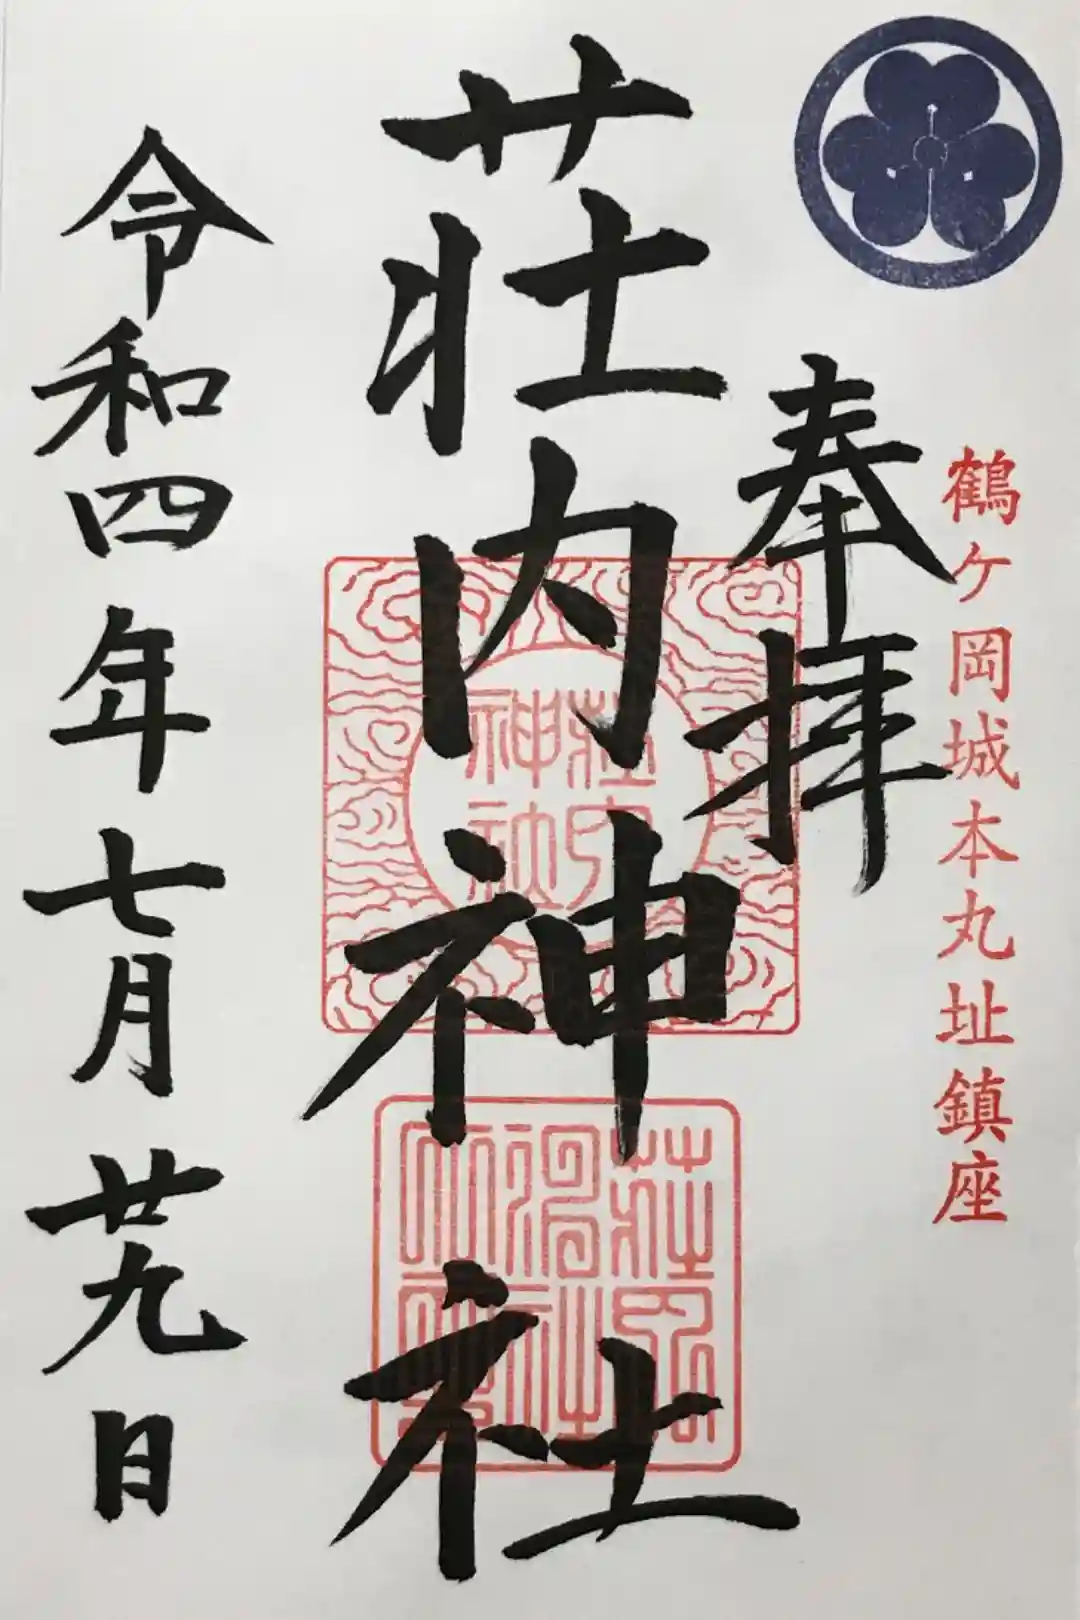 鶴ヶ岡城本丸址鎮座
奉拝
荘内神社
荘内
神社
令和四年七月廿九日